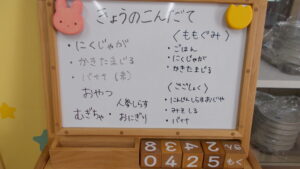 きょうのこんだて
・にくじゃが
・かきたまじる
・バナナ
おやつ
人参しらす
むぎちゃ・おにぎり
〈ももぐみ〉
・ごはん
・にくじゃが
・かきたまじる
〈ごごしょく〉
・にんじんしらすおじや
・みそしる
・バナナ
0425
もく